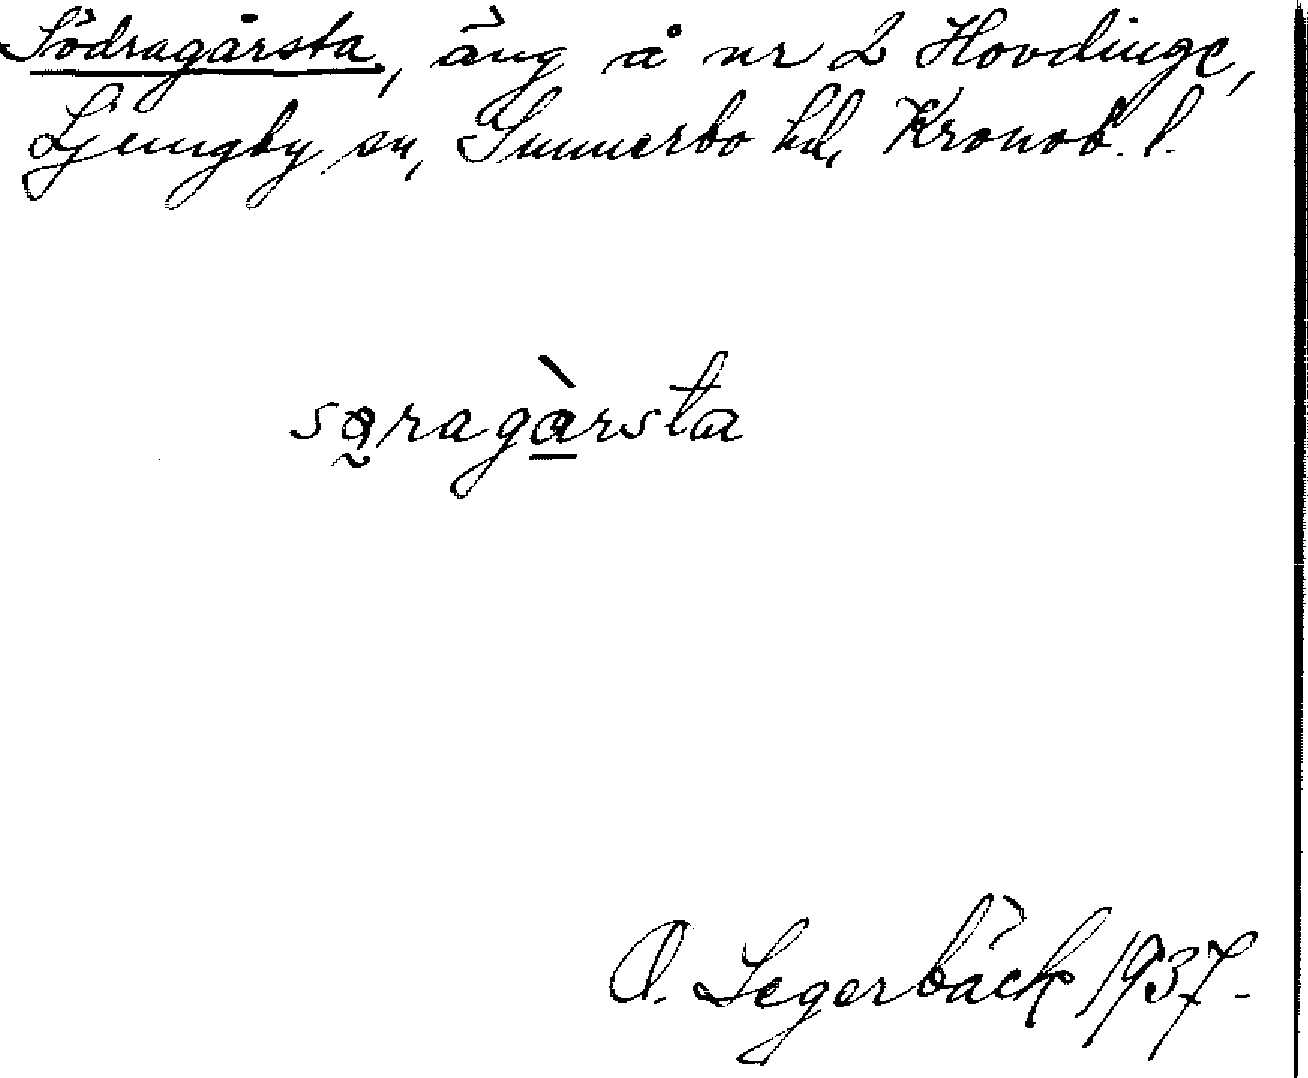 Södragårsta, äng å nr 2 Hovdinge,
Ljungby sn, Sunnerbo hd, Kronob. l.
søragàrsta
O. Segerbäck 1937.